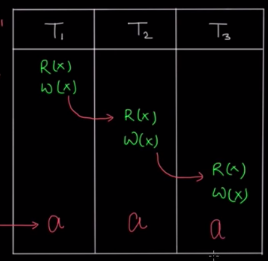 T₁ T₂ T₃
R(x)
W(x)
R(x)
W(x)
R(x)
W(x)
a a a